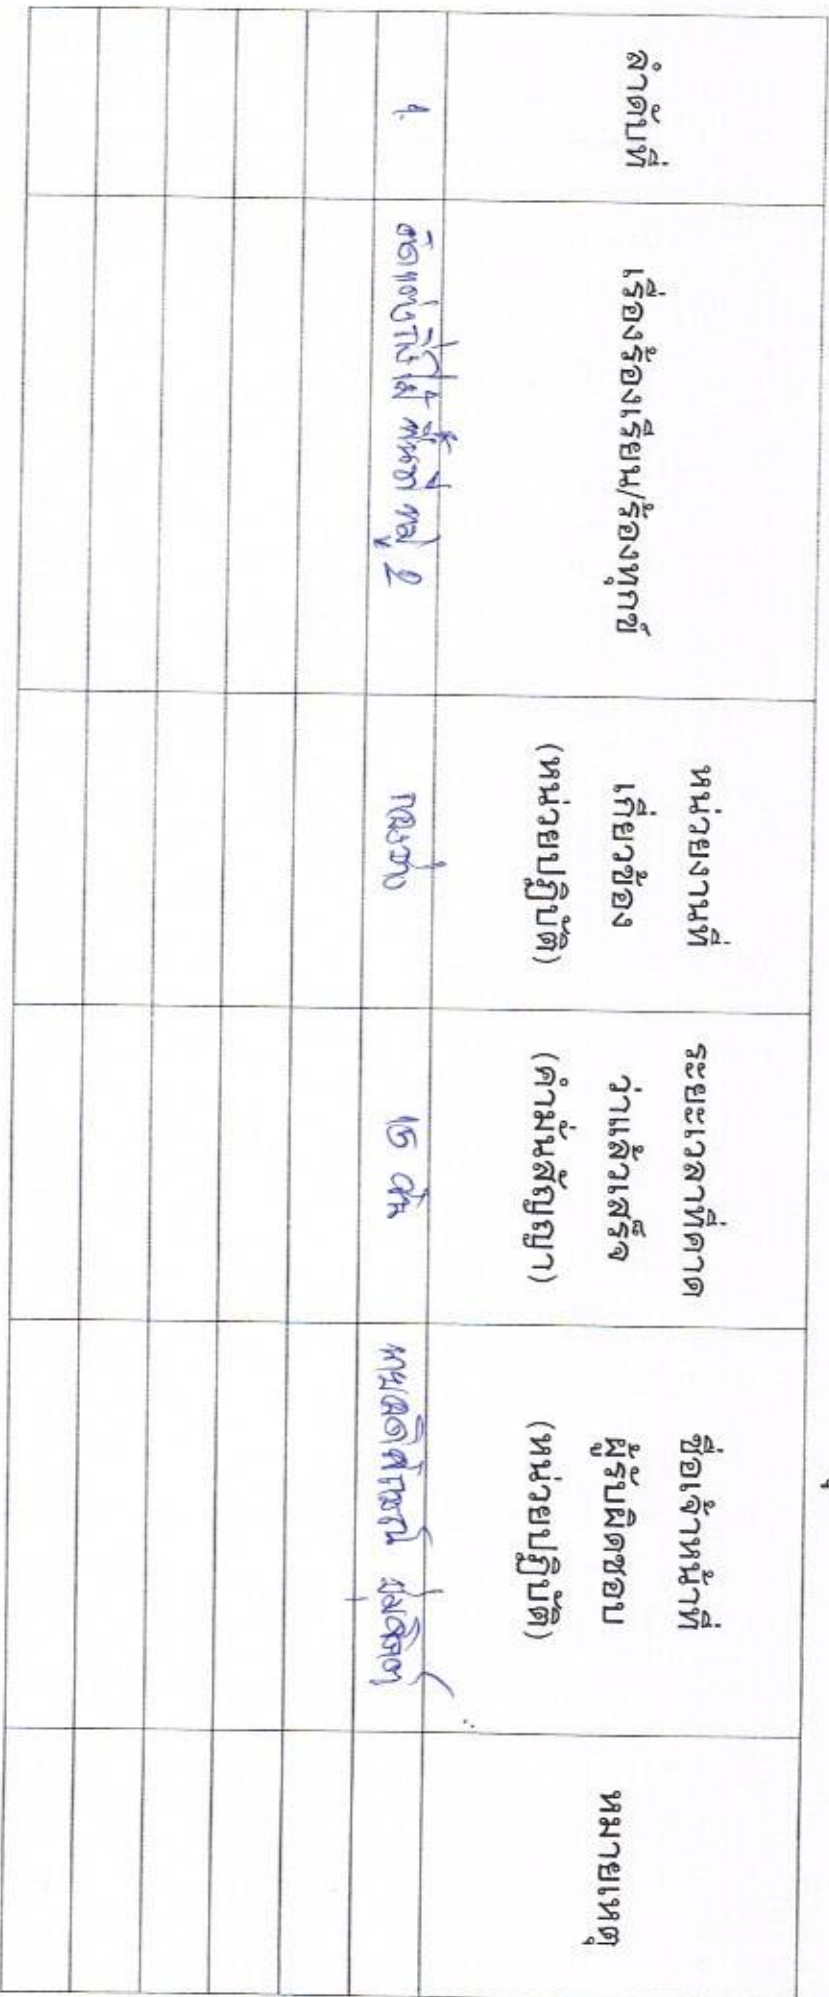 ลำดับที่
เรื่องร้องเรียน/ร้องทุกข์
หน่วยงานที่
เกี่ยวข้อง
(หน่วยปฏิบัติ)
ระยะเวลาที่คาด
ว่าแล้วเสร็จ
(คำมั่นสัญญา)
ชื่อเจ้าหน้าที่
ผู้รับผิดชอบ
(หน่วยปฏิบัติ)
หมายเหตุ
1.
ตัดแต่งกิ่งไม้ พื้นที่ หมู่ 2
กองช่าง
15 วัน